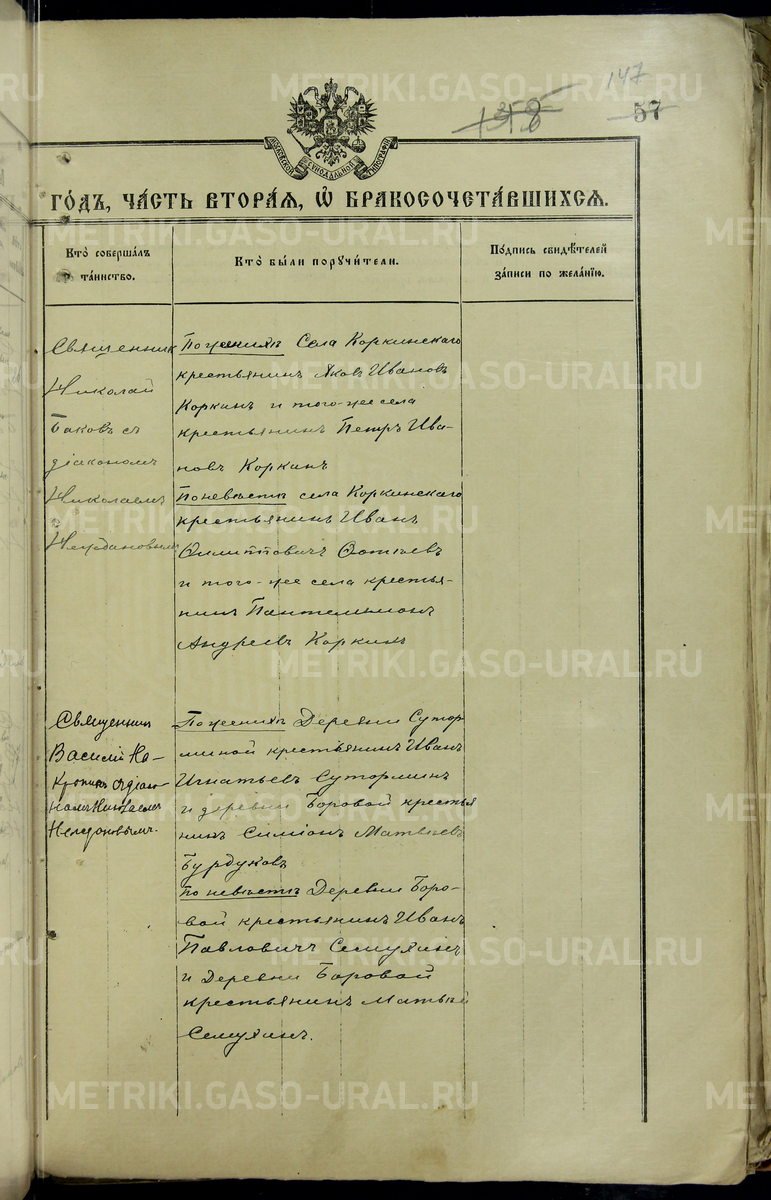 147
138
57
МОСКОВСКОЙ СѴНОДАЛЬНОЙ ТИПОГРАФІИ
ГОДЪ, ЧАСТЬ ВТОРАЯ, Ѡ БРАКОСОЧЕТАВШИХСЯ.
Кто совершалъ таинство.
Кто были поручители.
Подпись свидѣтелей записи по желанію.
Священникъ
Николай
Баковъ съ
діакономъ
Николаемъ
По женихѣ Села Коркинскаго
крестьянинъ Яковъ Ивановъ
Коркинъ и того-же села
крестьянинъ Петръ Ива-
новъ Коркинъ
По невѣстѣ села Коркинскаго
крестьянинъ Иванъ
Филипповичъ
и того-же села крестья-
нинъ Пантелеимонъ
Андреевъ Коркинъ
Священникъ
Василій
съ діако-
номъ Николаемъ
По женихѣ Деревни Сутор
миной крестьянинъ Иванъ
Игнатьевъ Суторминъ
и деревни Боровой крестья
нинъ Симеонъ Матвѣевъ
Бурдуковъ
По невѣстѣ Деревни Боро-
вой крестьянинъ Иванъ
Павловичъ Семухинъ
и Деревни Боровой
крестьянинъ Матвѣй
Семухинъ.
METRIKI.GASO-URAL.RU